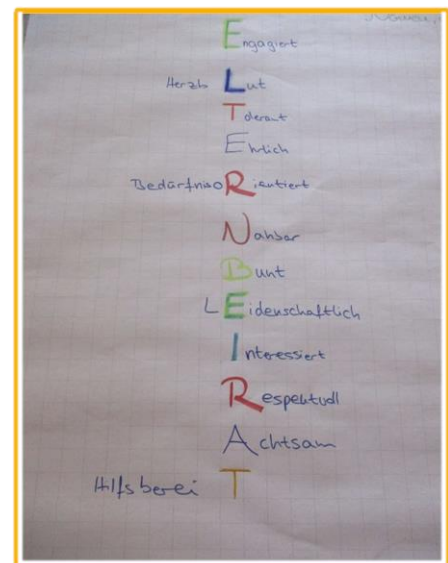 Engagiert
HerzbLut
Tolerant
Ehrlich
BedürfnisoRientiert
Nahbar
Bunt
LEidenschaftlich
Interessiert
Respektvoll
Achtsam
HilfsbereiT